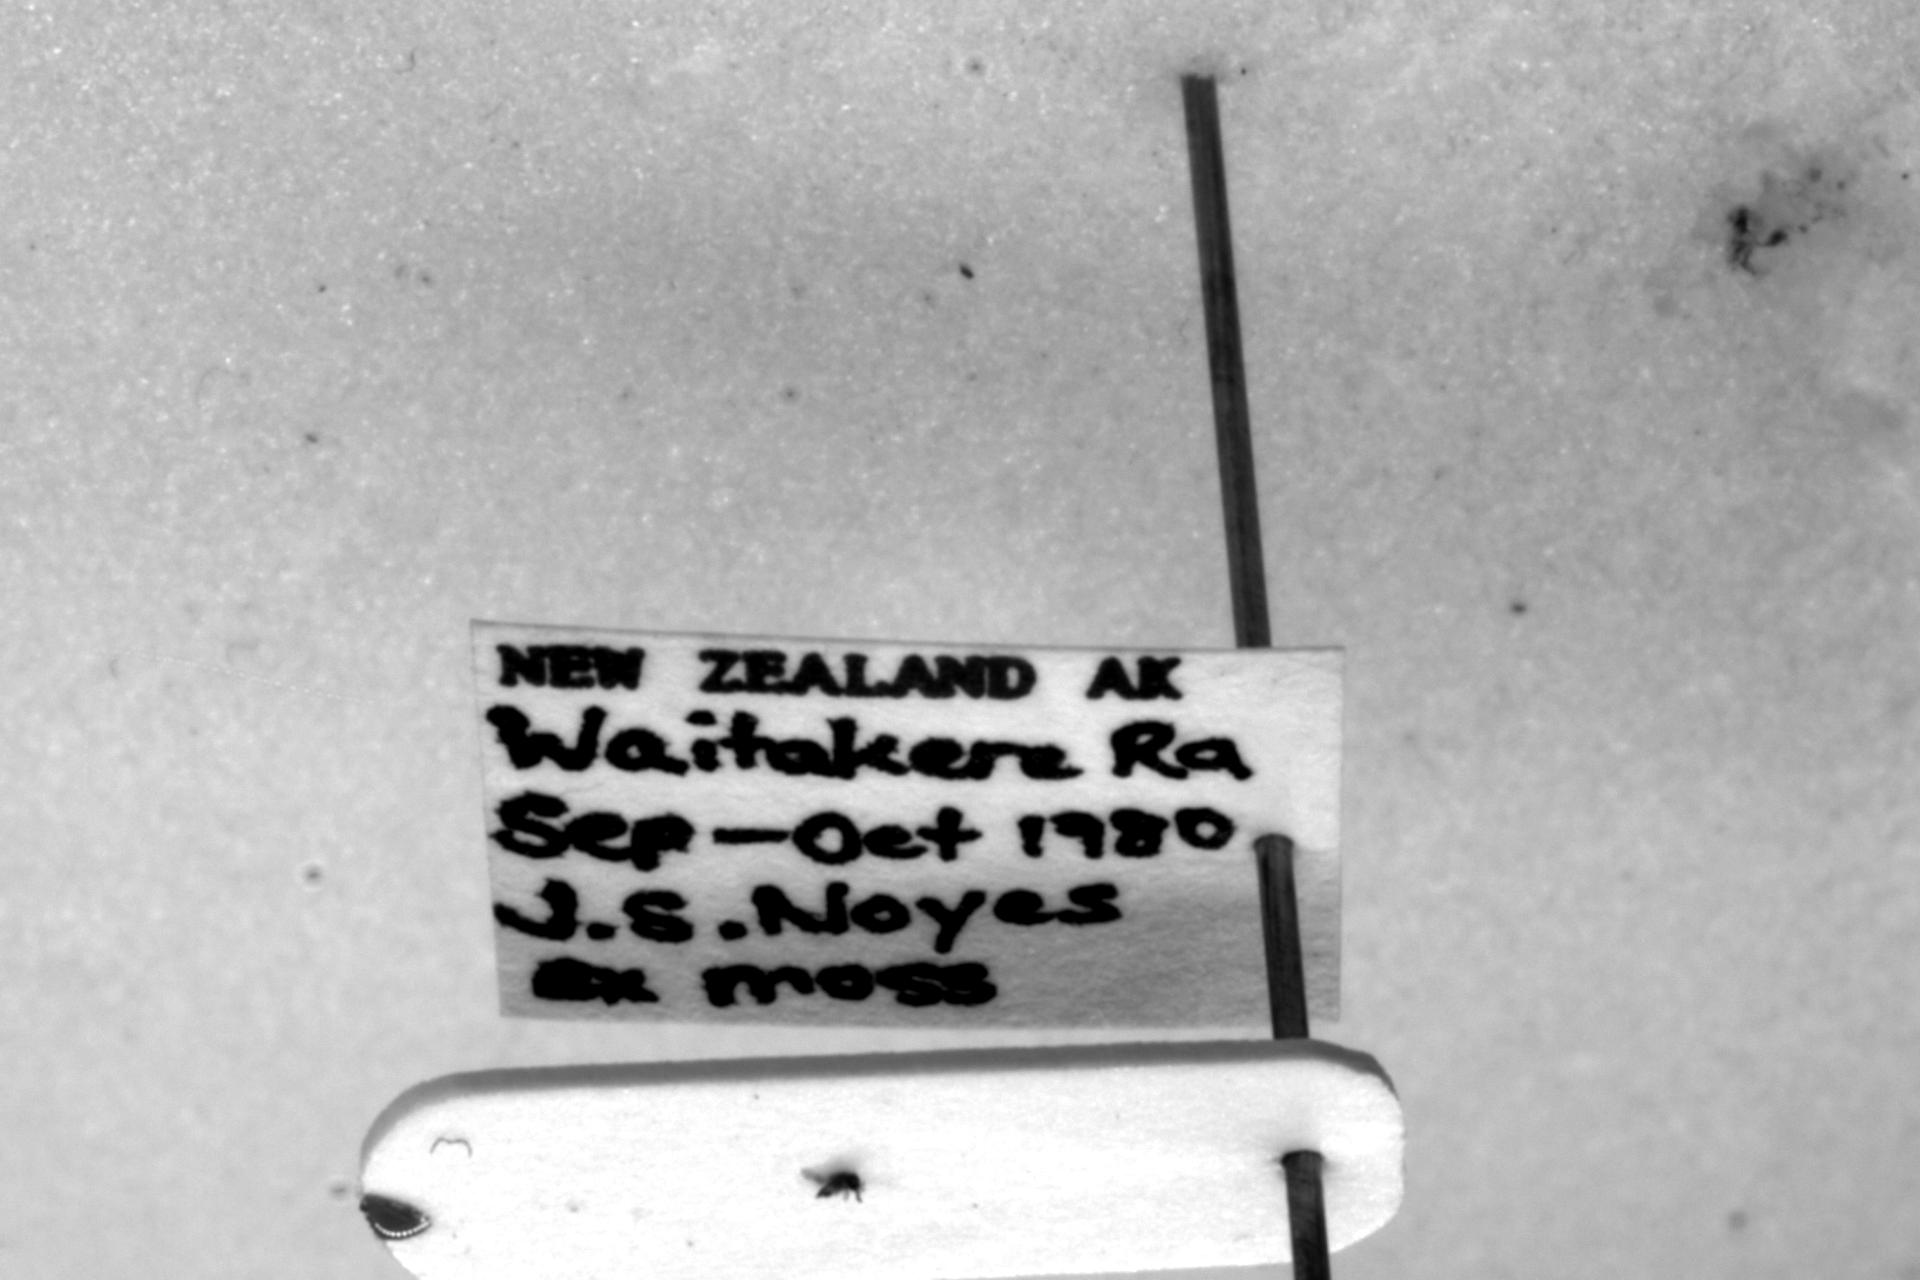 NEW ZEALAND AK
Waitakere Ra
Sep-Oct 1980
J.S. Noyes
ex moss